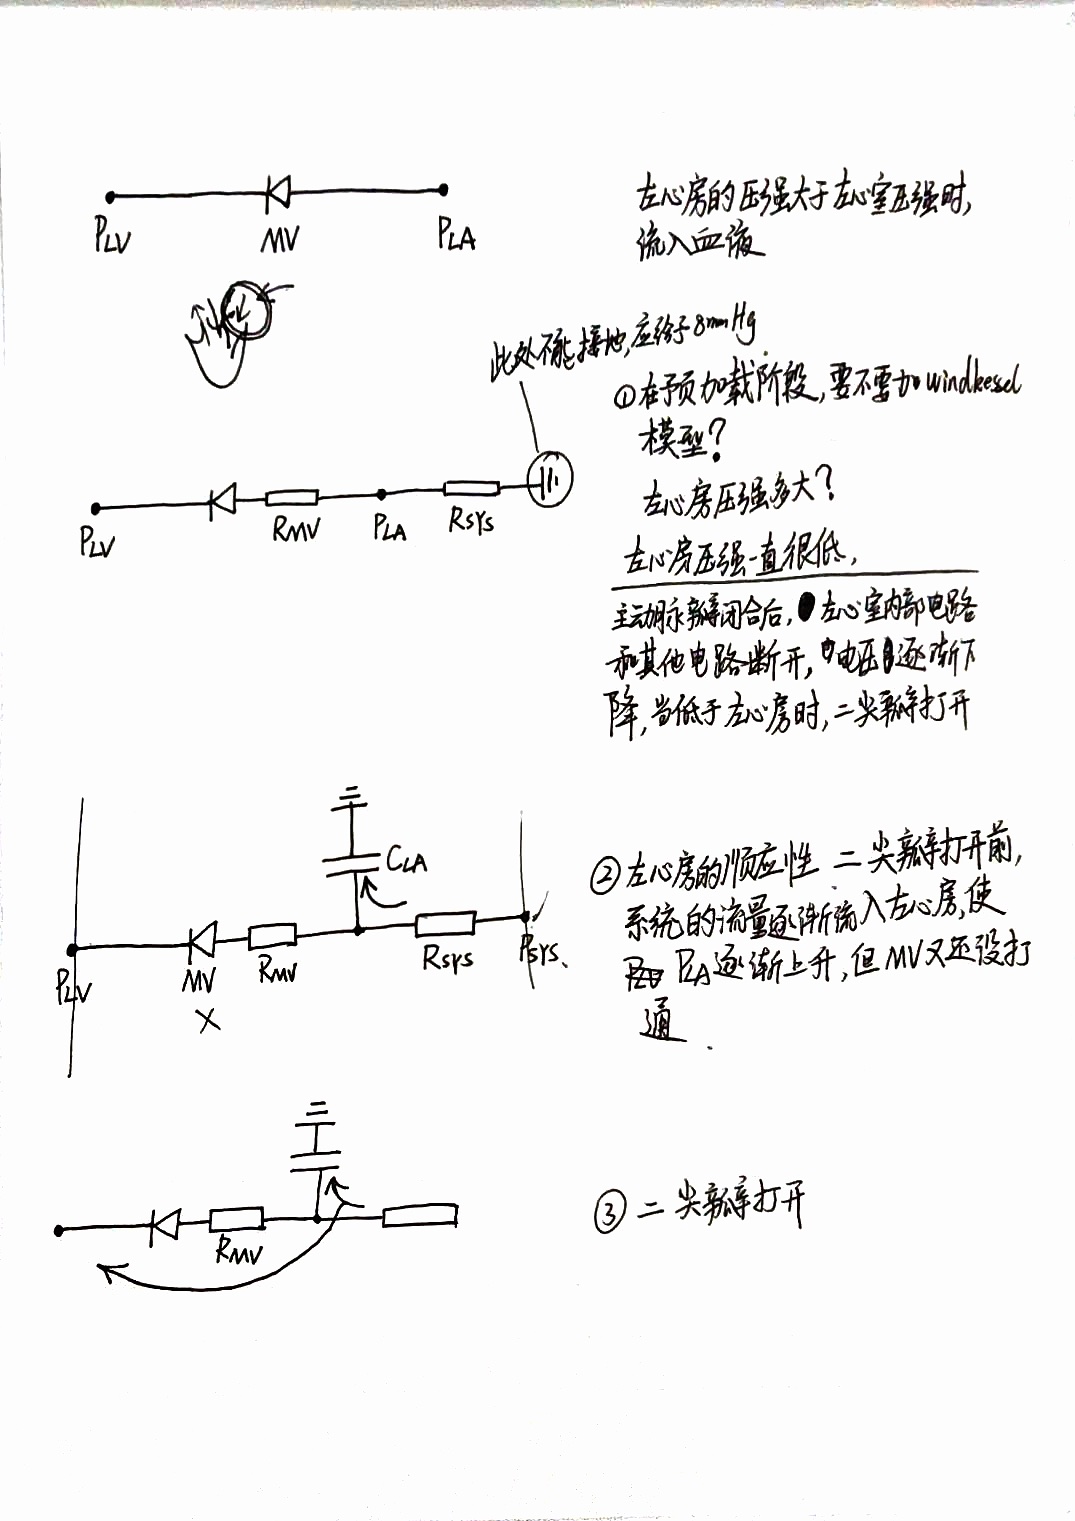 左心房的压强大于左心室压强时,
流入血液
PLV
MV
PLA
此处不能接地,应给予8mmHg
①在预加载阶段,要不要加windkessel
模型?
左心房压强多大?
左心房压强一直很低,
PLV
RMV
PLA
RSYS
主动脉瓣闭合后,左心室内部电路
和其他电路断开,电压逐渐下
降,当低于左心房时,二尖瓣打开
CLA
PLV
MV
RMV
RSYS
PSYS
②左心房的顺应性 二尖瓣打开前,
系统的流量逐渐流入左心房,使
PLA逐渐上升,但MV又还没打
通.
RMV
③二尖瓣打开